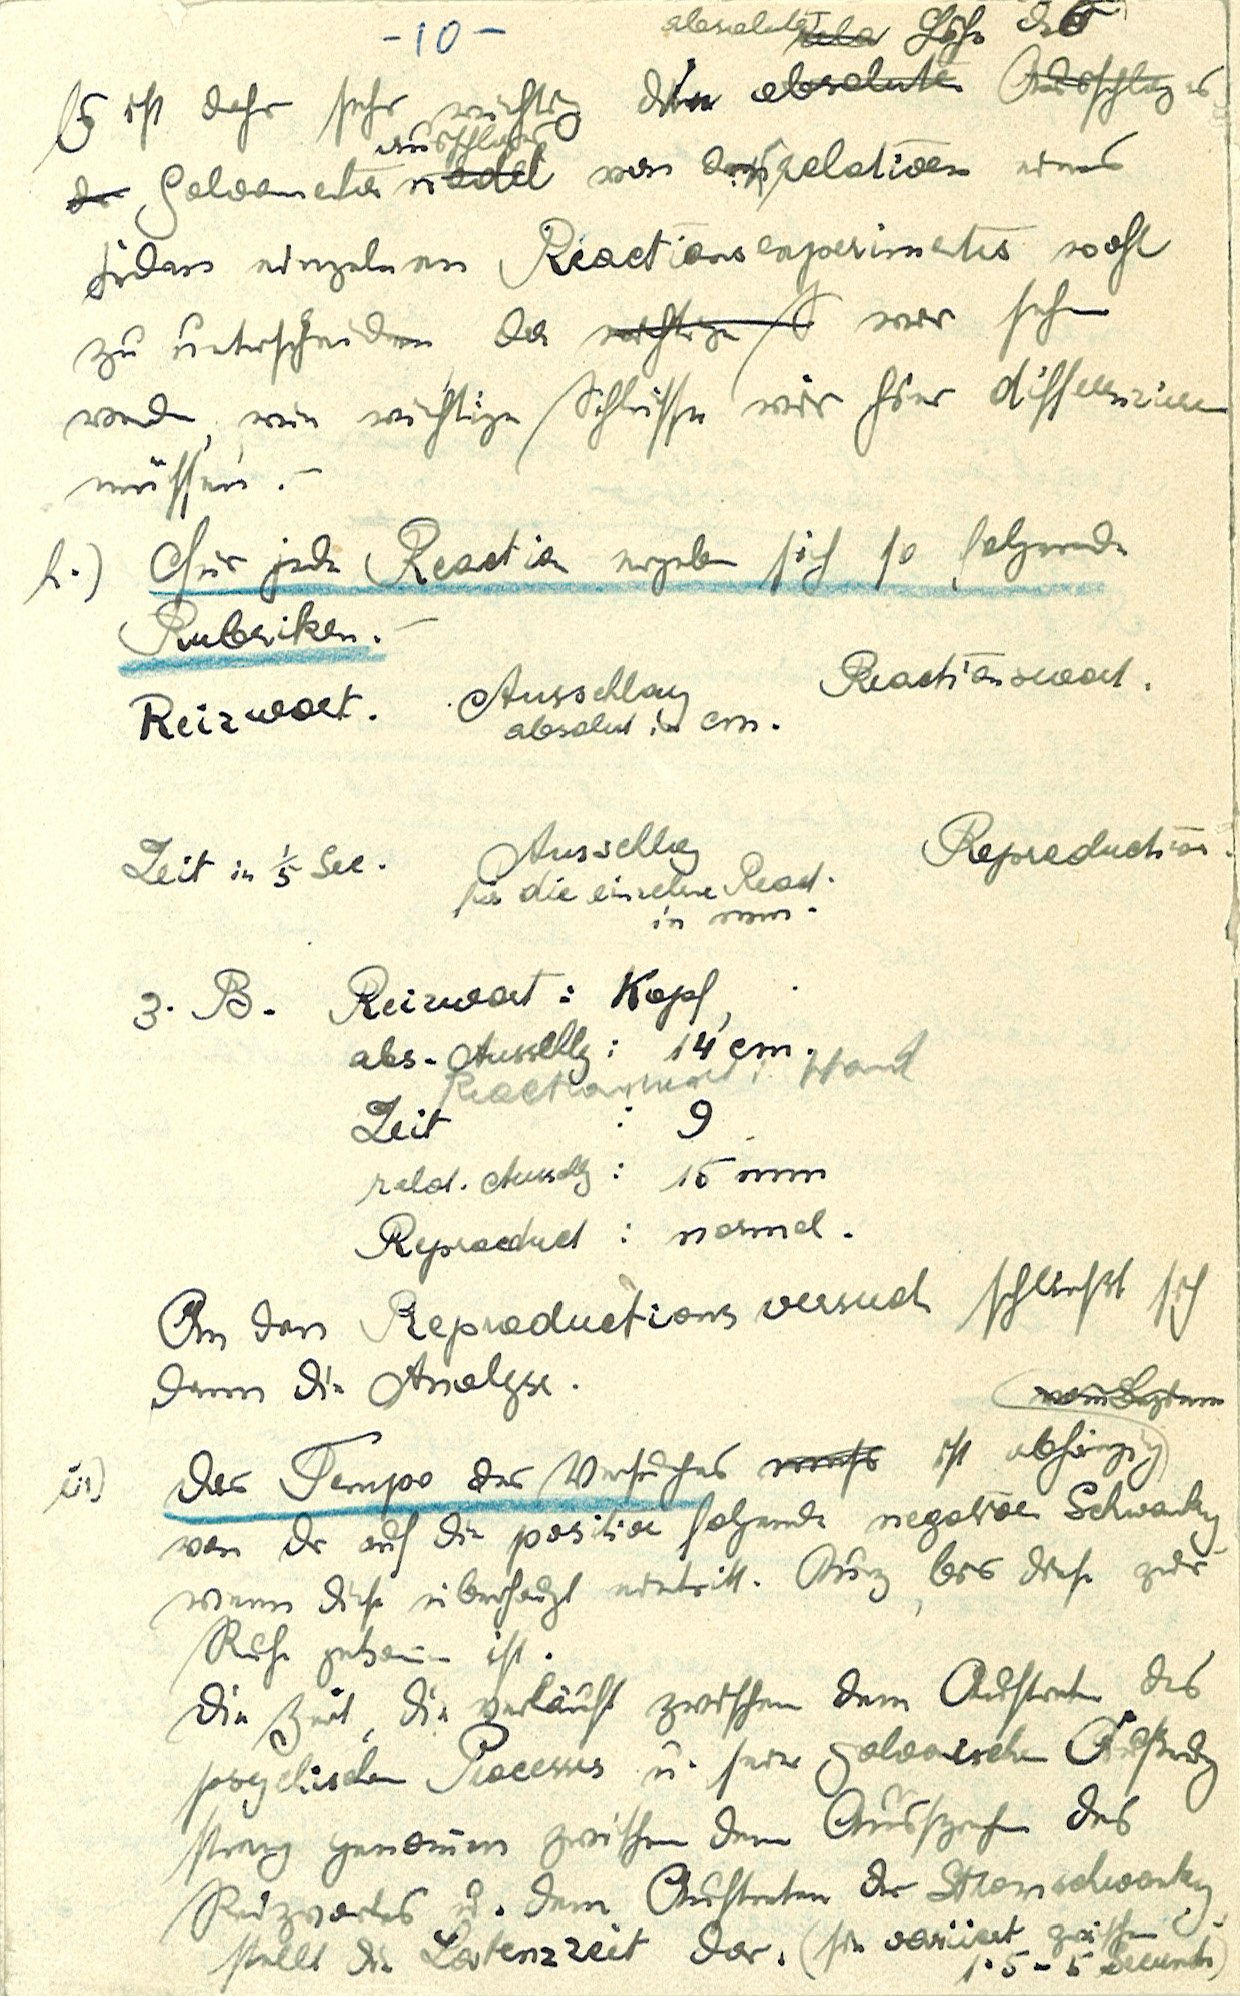 -10-
absolute Höhe des
Es ist daher sehr wichtig die absolute Ausschlages
des Galvanometer ausschlages nadel von der relativen eines
jeden einzelnen Reactionsexperimentes wohl
zu unterscheiden da wichtige S wir sehen
werden, wie wichtige Schlüsse wir hier differenzieren
müssen. -
h.) Für jede Reaction ergeben sich so folgende
Rubriken. -
Reizwort. Ausschlag Reactionswort.
absolut in cm.
Zeit in 1/5 Sec. Ausschlag Reproduction.
für die einzelne React.
in mm.
z. B. Reizwort : Kopf,
abs. Ausschlg : 14 cm.
Reactionswort : Hand
Zeit : 9
relat. Ausschlg : 15 mm
Reproduct : normal.
An den Reproductionsversuch schliesst sich
dann die Analyse.
vom
Das Tempo des Versuches muss ist abhängig
von der auf die positive folgende negative Schwankg
wenn diese überhaupt eintritt. bis diese zur
Ruhe gekommen ist.
Die Zeit, die verläuft zwischen dem Auftreten des
psychischen Processes u. seiner galvanischen
streng genommen zwischen dem Aussprechen des
Reizwortes u. dem Auftreten der Stromschwankg
stellt die Latenzzeit dar. (sie variiert zwischen
1·5 - 5 Secunden)